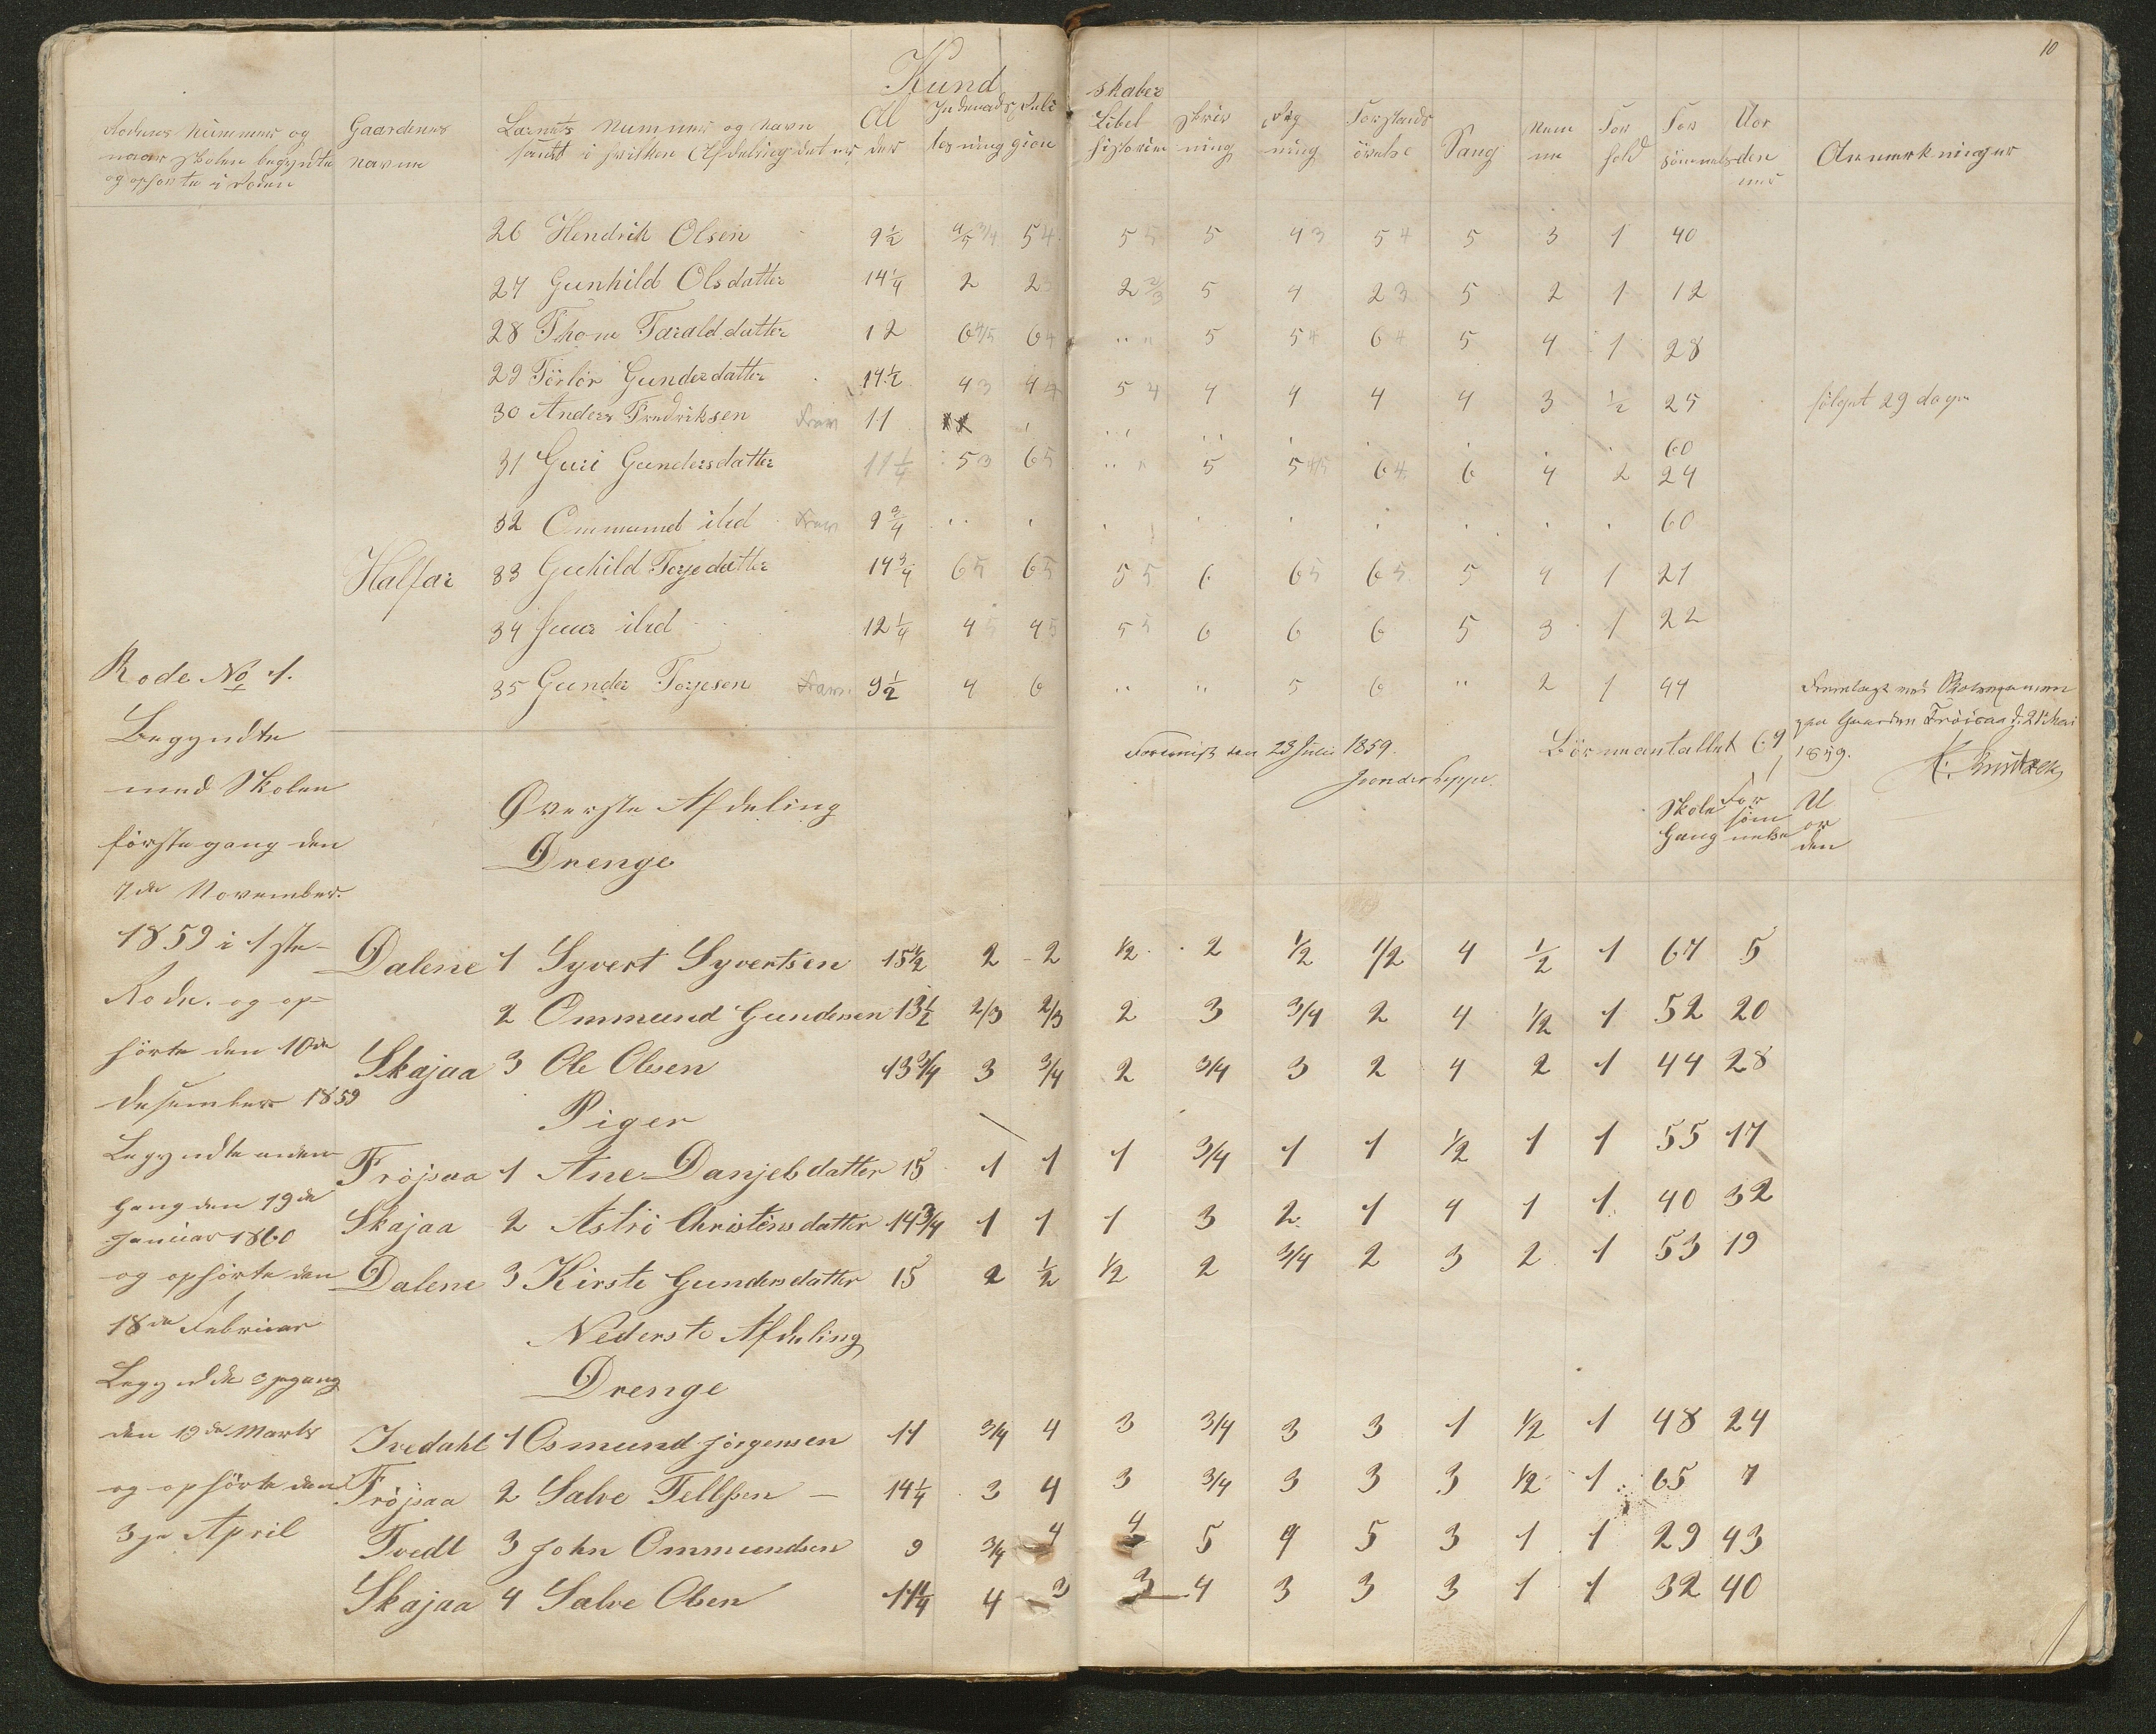 10
Kundskaber
Rodens Nummer og naar Skolen begyndte og ophørte i Roden
Gaardenes Navne
Barnets Nummer og Navn samt i hvilken Afdeling det er
Alder
Indenadslesning
Religion
Bibelhistorie
Skrivning
Regning
Forstandsøvelse
Sang
Nemme
Forhold
Forsømmelse
Uordener
Anmerkninger
26 Hendrik Olsen 9½ 4/5 3/4 5 4 5 5 5 4 3 5 4 5 3 1 40
27 Gunhild Olsdatter 14¼ 2 2 2 2/3 5 4 2 3 5 2 1 12
28 Thone Taralddatter 12 6 4/5 6 4 " " 5 5 4 6 4 5 4 1 28
29 Törlör Gundersdatter 14½ 4 3 4 4 5 4 4 4 4 4 3 ½ 25 følget 29 dage
30 Anders Fredriksen Frav 11 60
31 Guri Gundersdatter 11¼ 5 3 6 5 " " 5 5 4/5 6 4 6 4 2 24
32 Ommund ibid Frav 9¾ 60
Halfar 33 Guhild Torjedatter 14¾ 6 5 6 5 5 5 6 6 5 6 5 5 4 1 21
34 ibid 12¼ 4 5 4 5 5 5 6 6 6 5 3 1 22
35 Gunder Torjesen Frav. 9½ 4 6 " " 5 6 " 2 1 44
Fremlagt ved Skoleexamen
paa Gaarden Fröisaa d. 21 Mai
1859.
den 23 Juli 1859.
Börneantallet 69
Skole Gang
Forsömmelse
Uorden
Rode No 1.
Begyndte
med Skolen
förste gang den
7de November.
1859 i 1ste
Rode. og op-
hörte den 10de
Desember 1859
Begyndte anden
Gang den 19de
Januar 1860
og ophörte den
18de Februar
Begyndte 3je gang
den 19de Marts
og ophörte den
3je April
Øverste Afdeling
Drenge
Dalene 1 Syvert Syvertsen 15½ 2 2 1/2 2 1/2 1/2 4 1/2 1 67 5
2 Ommund Gundersen 13½ 2/3 2/3 2 3 3/4 2 4 1/2 1 52 20
Skajaa 3 Ole Olsen 13 3/4 3 3/4 2 3/4 3 2 4 2 1 44 28
Piger
Fröjsaa 1 Ane Danjelsdatter 15 1 1 1 3/4 1 1 1/2 1 1 55 17
Skajaa 2 Astri Christensdatter 14 3/4 1 1 1 3 2 1 4 1 1 40 32
Dalene 3 Kirste Gundersdatter 15 2 1/2 1/2 2 3/4 2 3 2 1 53 19
Nederste Afdeling
Drenge
Ivedahl 1 Osmund Jörgensen 11 3/4 4 3 3/4 3 3 1 1/2 1 48 24
Fröjsaa 2 Salve Tellefsen 14¼ 3 4 3 3/4 3 3 3 1/2 1 65 7
Tvedt 3 John Ommundsen 9 3/4 4 4 5 4 5 3 1 1 29 43
Skajaa 4 Salve Olsen 11¼ 4 3 3 4 3 3 3 1 1 32 40